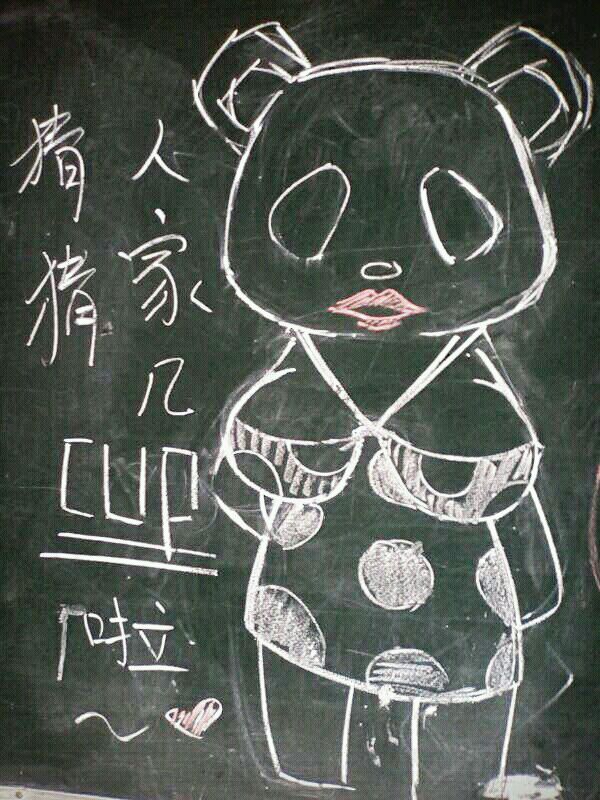 猜猜
人家几
CUP
啦
~